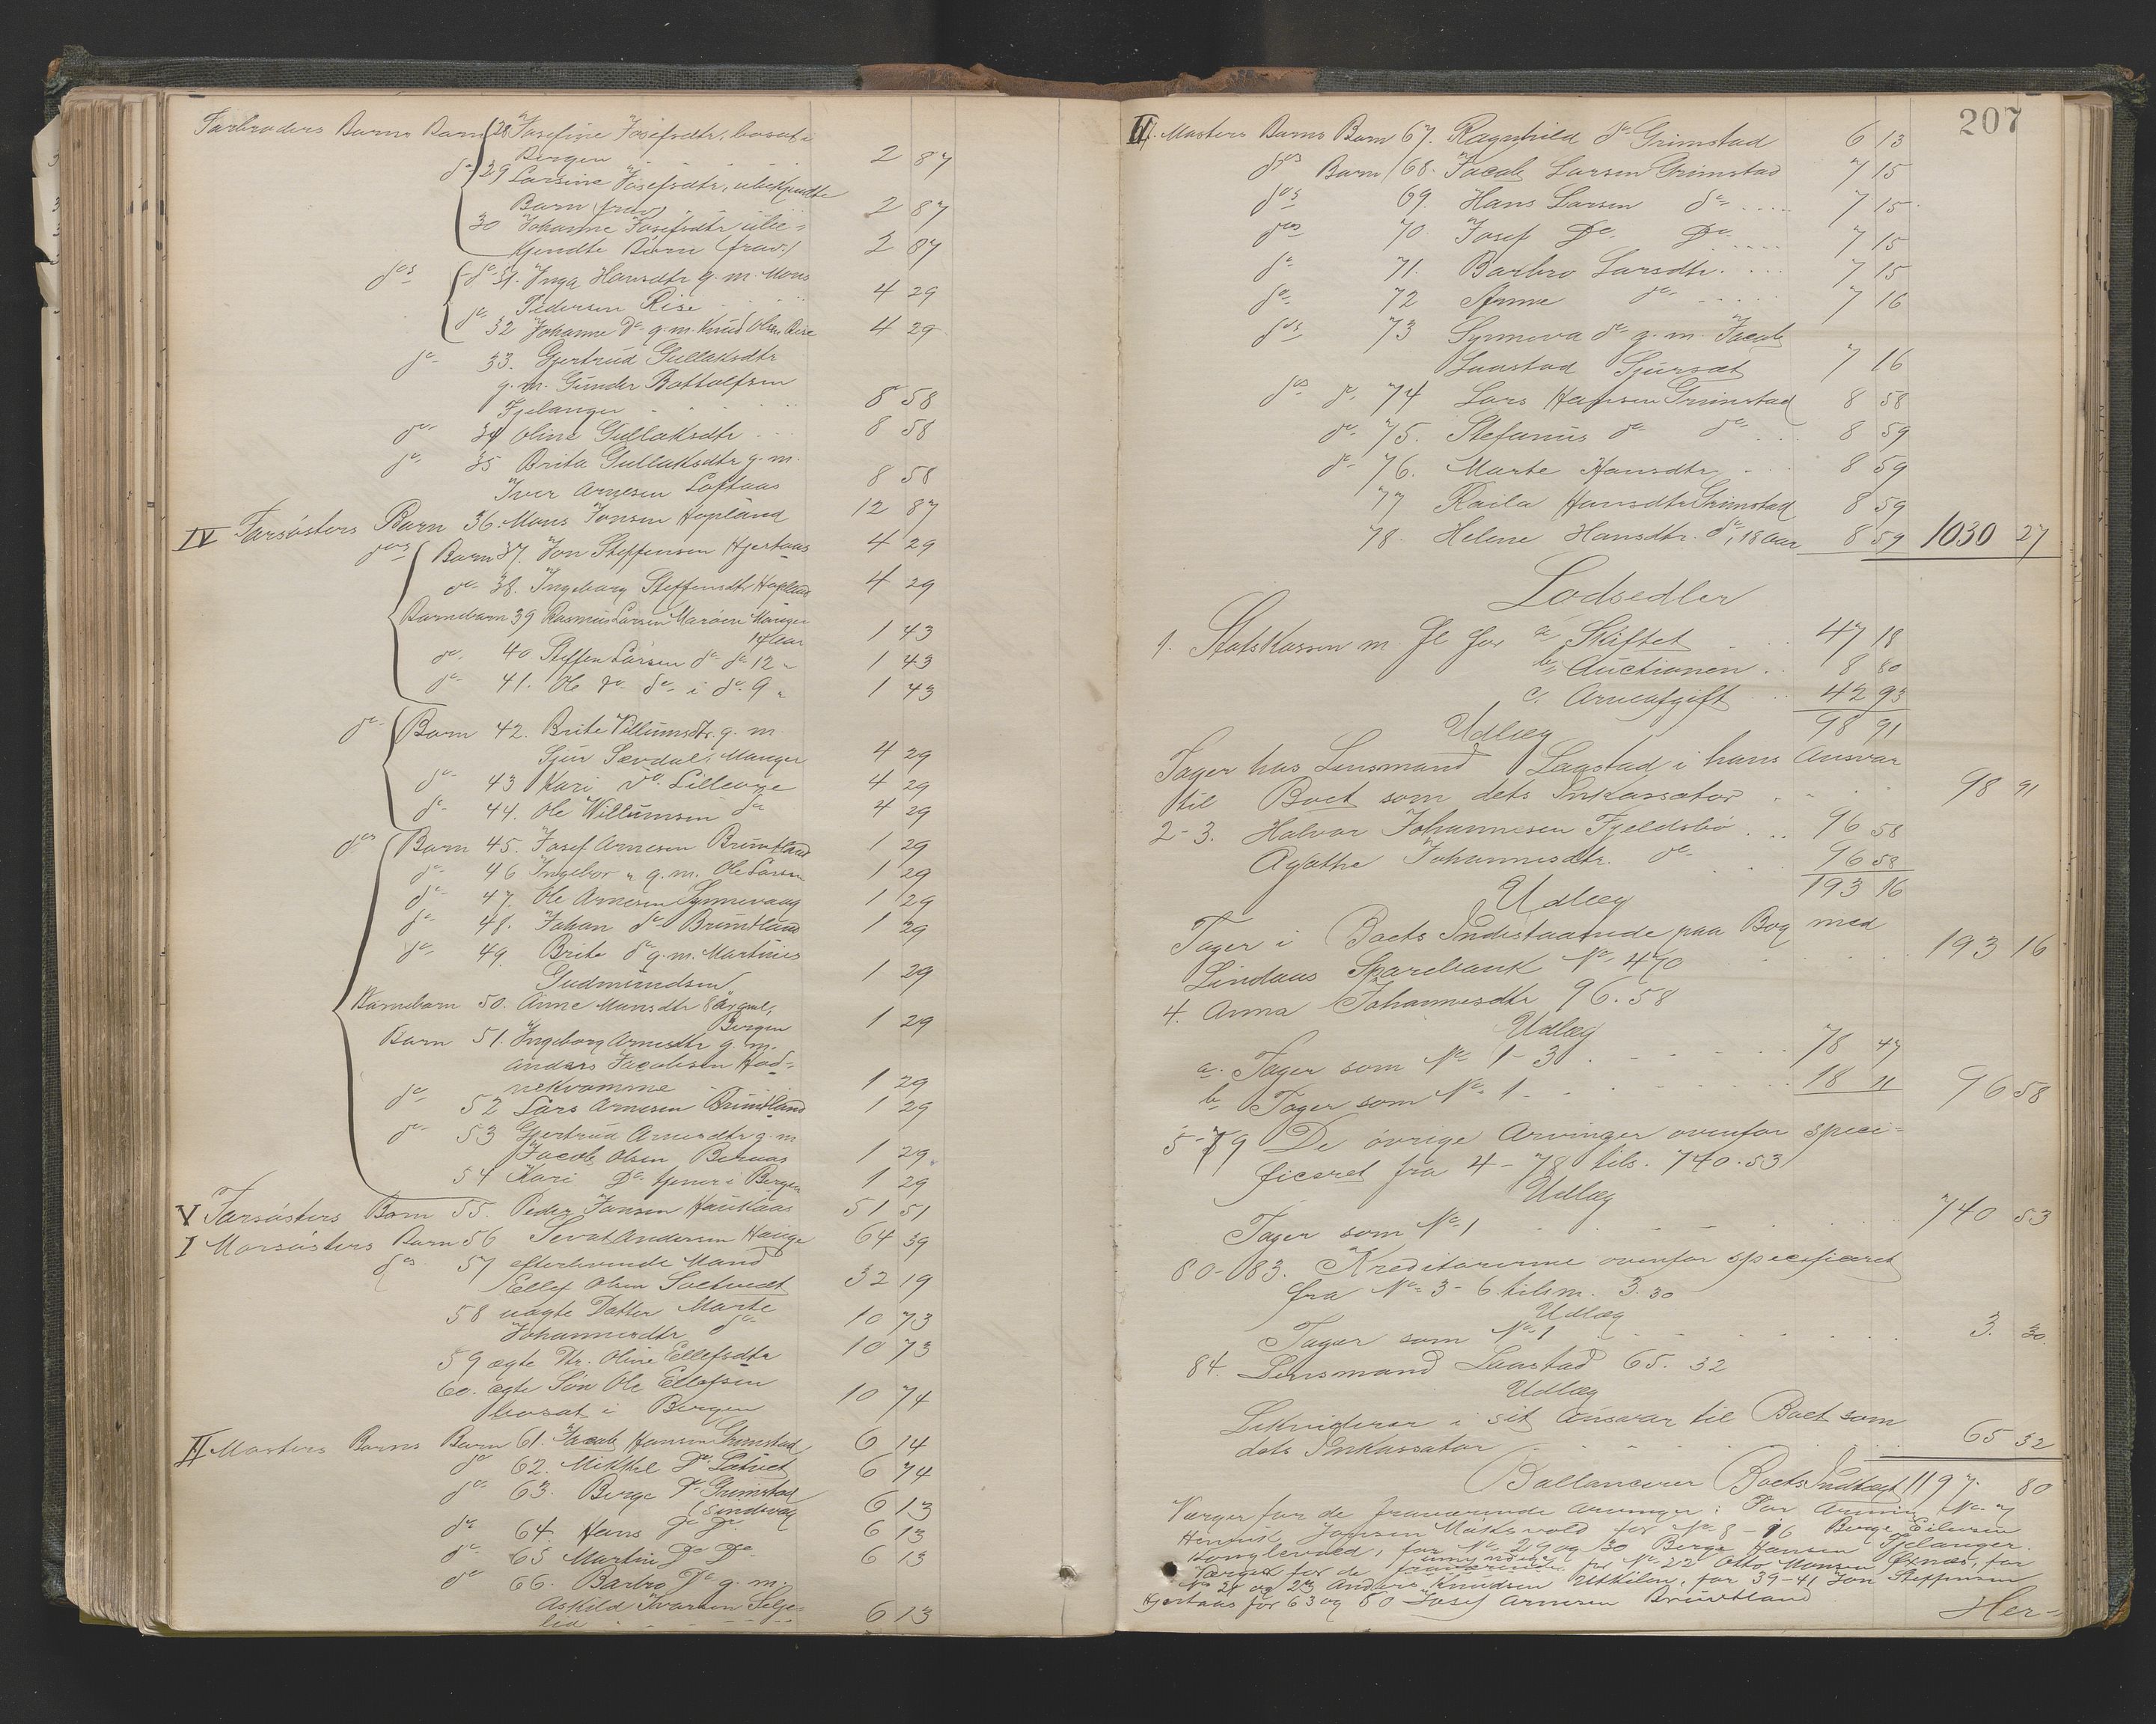 Farbroders Barns Barn 28 Josefine Josefsdtr, bosat i
Bergen 2 87
do 29 Larsine Josefsdtr, ubekjendte
Børn (frav) 2 87
30 Johanne Josefsdtr ube=
kjendte Børn (frav.) 2 87
do do 31. Inga Hansdtr g. m. Mons
Pedersen Rise 4 29
do 32 Johanne do g. m. Knud Olsen Rise 4 29
do 33. Gjertrud Gullaksdtr
g. m. Gunder Bottolfsen
Fjelanger 8 58
do 34 Oline Gullaksdtr 8 58
do 35 Brita Gullaksdtr g. m.
Iver Arnesen Loftaas 8 58
IV Farsösters Barn 36. Mons Jonsen Hopland 12 87
dos Barn 37. Jon Steffensen Hjertaas 4 29
do 38. Ingeborg Steffensdtr Hopland 4 29
Barnebarn 39 Rasmus Larsen Maröen Manger
14 Aar 1 43
do 40 Steffen Larsen do do 12 " 1 43
do 41. Ole do do i do 9 " 1 43
do Barn 42. Brite Villumsdtr. g. m
Sjur Sævdal, Manger 4 29
do 43 Kari do Lilleoge 4 29
do 44. Ole Willumsen do 4 29
dos Barn 45. Josef Arnesen Bruntland 1 29
do 46 Ingebor " g. m. Ole Larsen 1 29
do 47. Ole Arnesen Synnevaag 1 29
do 48. Johan do Bruntland 1 29
do 49. Brite do g. m. Martinus
Gudmundsen 1 29
Barnebarn 50. Anne Monsdtr 8 Aar gml,
Bergen 1 29
Barn 51. Ingeborg Arnesdtr g. m.
Anders Jacobsen Hod=
nekvamme 1 29
do 52 Lars Arnesen Bruntland 1 29
do 53 Gjertrud Arnesdtr g. m
Jacob Olsen Bernes 1 29
54 Kari do tjener i Bergen 1 29
V Farsösters Barn 55. Peder Jonsen Haukaas 51 51
I Morsösters Barn 56 Sevat Andersen Hauge 64 39
dos 57 efterlevende Mand
Ellef Olsen Soltvedt 32 19
58 uægte Datter Marte
Johannesdtr do 10 73
59 ægte Dtr. Oline Ellefsdtr 10 73
60. ægte Sön Ole Ellefsen
bosat i Bergen 10 74
II Mosters Barns Barn 61. Jacob Hansen Grimstad 6 14
do 62. Mikkel do Sætvet 6 74
do 63. Berge do Grimstad
6 13
do 64. Hans do do 6 13
do 65 Martin do do 6 13
do 66. Barbro do g. m.
Askild Ivarsen Selje=
lid 6 13
207
II. Mosters Barns Barn 67. Ragnhild do Grimstad 6 13
dos Barn 68. Jacob Larsen Grimstad 7 15
dos 69. Hans Larsen do 7 15
dos 70. Josef do do 7 15
do 71. Barbro Larsdtr. 7 15
do 72 Anne do 7 16
dos 73 Synneva do g. m. Jacob
Laastad Sjursæt 7 16
dos do 74 Lars Hansen Grimstad 8 58
do 75. Stefanus do do 8 59
do 76. Marte Hansdtr. 8 59
77 Raila Hansdtr Grimstad 8 59
78. Helene Hansdtr. do, 18 Aar 8 59 1030 27
Lodsedler
1. Statskassen m. fl for a. Skiftet 47 18
b. Auctionen 8 80
c. Arveafgift 42 93
98 91
Udlæg
Tager hos Lensmand Laastad i hans Ansvar
til Boet som dets Inkassator 98 91
2-3. Halvor Johannesen Fjeldsbö 96 58
Agathe Johannesdtr. do 96 58
193 16
Udlæg
Tager i Boets Indestaaende paa Bog med
Lindaas Sparebank No 470 193 16
4. Anna Johannesdtr 96.58
Udlæg
a. Tager som No 1-3 78 47
b Tager som No 1 18 11 96 58
5-79 De övrige Arvinger ovenfor speci=
ficeret fra 4-78 tils. 740.53
Udlæg
Tager som No 1 740 53
80-83. Kreditorerne ovenfor specificeret
fra No 3-6 tilsm. 3.30
Udlæg
Tager som No 1 3. 30
84. Lensmand Laastad 65.32
Udlæg
Likviderer i sit Ansvar til Boet som
dets Inkassator 65 32
Ballancerer Boets Indtægt 1197. 80
Værger for de fraværende Arvinger: For Arving No 7
Henrik Jonsen for No 8-16 Berge Eilersen
Konglevold, for No 29 og 30 Berge Hansen Fjelanger.
Værger for de umyndige for No 22 Otto Monsen Öxnæs, for
No 21 og 23 Anders Knudsen Utkilen, for 39-41 Jon Steffensen
Hjertaas for 63 og 50 Josef Arnesen Bruntland
Her=